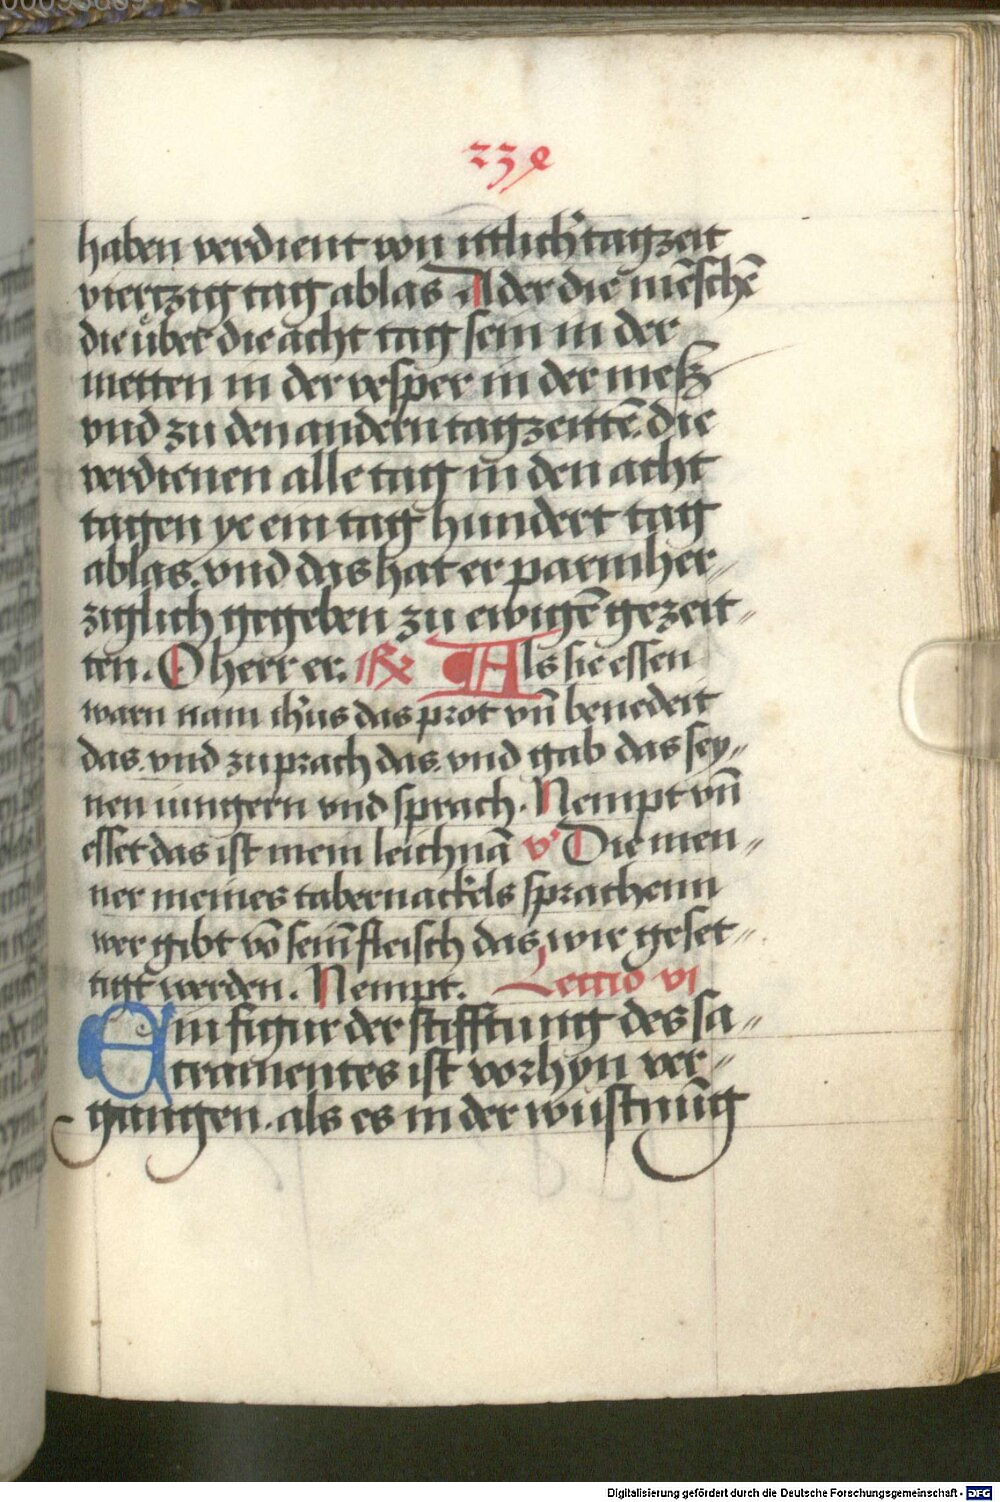 00093889
234
haben verdient von ittlich' tagzeit
viertzig tag ablas Alder die mēschē
die über die acht tag sein in der
metten in der vesper in der meß
vnd zu den andern tagzeittē. die
verdienen alle tag in den acht
tagen ye ein tag hundert tag
ablas. vnd das hat er parmher⸗
ziglich gegeben zu ewigē gezeit⸗
ten. O herr er. R Als sie essen
warn nam ih'us das prot vn̄ benedeit
das. vnd zuprach das. vnd gab das sey⸗
nen iungern vnd sprach. Nempt vn̄
esset das ist mein leichnā v' Die men⸗
ner meines tabernackels sprachenn
wer gibt vō seim̄ fleisch das wir geset⸗
tigt werden. Nempt. Lectio vi
Ein figur der stifftung des sa⸗
cramentes ist vorhyn ver⸗
gangen. als es in der wustnūg
Digitalisierung gefördert durch die Deutsche Forschungsgemeinschaft - DFG